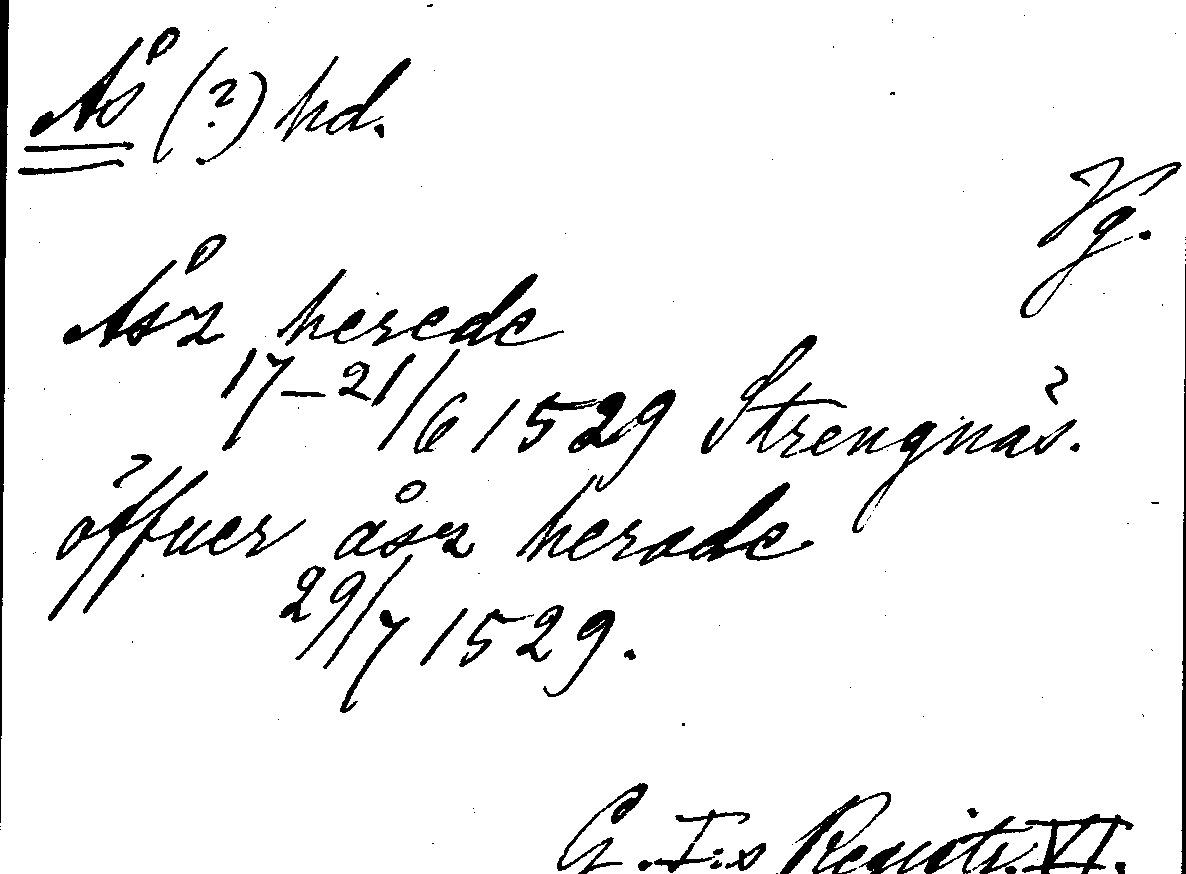 Ås (?) hd.
Vg.
Åsz herede
17–21/6 1529 Strengnäs.
öffuer åsz herade
29/7 1529.
G. I:s Registr. VI.